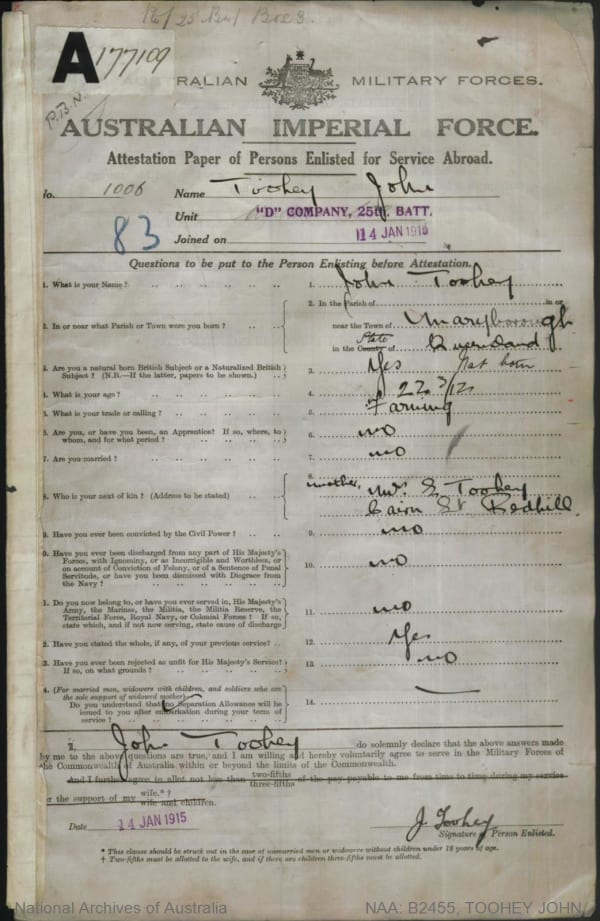 Ref 25 Bn/ Box 3
A177109
P.B.N.
RALIAN MILITARY FORCES.
AUSTRALIAN IMPERIAL FORCE.
Attestation Paper of Persons Enlisted for Service Abroad.
No. 1006 Name Toohey John
83 Unit "D" COMPANY, 25th. BATT.
Joined on 14 JAN 1915
Questions to be put to the Person Enlisting before Attestation.
1. What is your Name? 1. John Toohey
2. In the Parish of in or
2. In or near what Parish or Town were you born? near the Town of Maryborough
State
in the County of Queensland
3. Are you a natural born British Subject or a Naturalized British
Subject? (N.B.—If the latter, papers to be shown.) 3. Yes Nat born
4. What is your age? 4. 22 3/12
5. What is your trade or calling? 5. Farming
6. Are you, or have you been, an Apprentice? If so, where, to
whom, and for what period? 6. no
7. Are you married? 7. no
8. Who is your next of kin? (Address to be stated) 8. mother, Mrs E Toohey
Cairn St Redhill.
9. Have you ever been convicted by the Civil Power? 9. no
0. Have you ever been discharged from any part of His Majesty's
Forces, with Ignominy, or as Incorrigible and Worthless, or
on account of Conviction of Felony, or of a Sentence of Penal
Servitude, or have you been dismissed with Disgrace from
the Navy? 10. no
1. Do you now belong to, or have you ever served in, His Majesty's
Army, the Marines, the Militia, the Militia Reserve, the
Territorial Force, Royal Navy, or Colonial Forces? If so,
state which, and if not now serving, state cause of discharge 11. no
2. Have you stated the whole, if any, of your previous service? 12. Yes
3. Have you ever been rejected as unfit for His Majesty's Service?
If so, on what grounds? 13. no
4. (For married men, widowers with children, and soldiers who are
the sole support of widowed mother)—
Do you understand that no Separation Allowance will be
issued to you after embarkation during your term of
service? 14. —
I, John Toohey do solemnly declare that the above answers made
by me to the above questions are true, and I am willing and hereby voluntarily agree to serve in the Military Forces of
the Commonwealth of Australia within or beyond the limits of the Commonwealth.
And I further agree to allot not less than two-fifths three-fifths of the pay payable to me from time to time during my service
for the support of my wife.*† wife and children.
Date 14 JAN 1915 J. Toohey
Signature of Person Enlisted.
* This clause should be struck out in the case of unmarried men or widowers without children under 18 years of age.
† Two-fifths must be allotted to the wife, and if there are children three-fifths must be allotted.
National Archives of Australia NAA: B2455, TOOHEY JOHN/